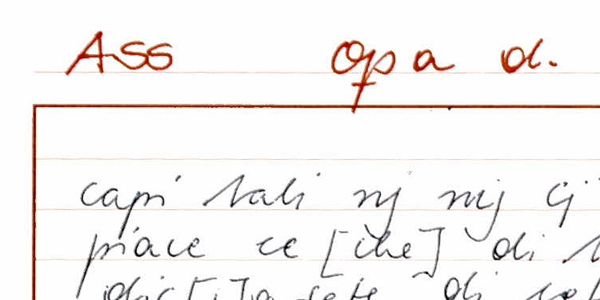 Ass Op a d.
capi tali nj mij cj
piace ce [che] di
di